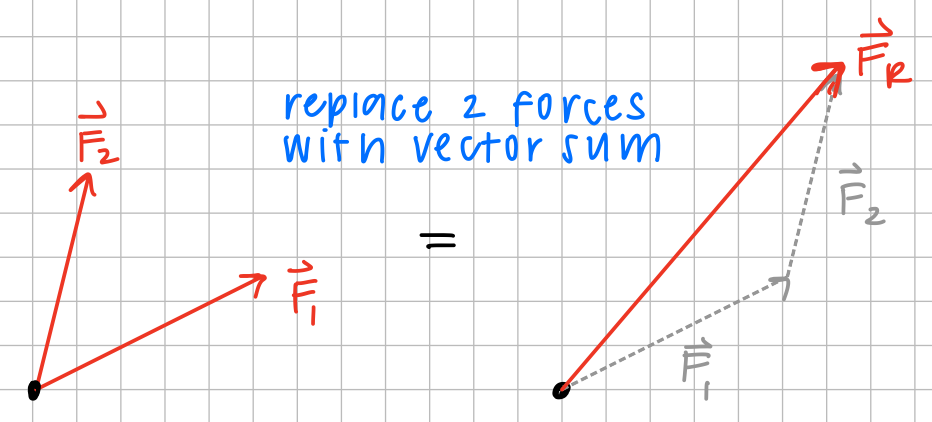 replace 2 forces
with vector sum
F⃗₂
F⃗₁
=
F⃗R
F⃗₂
F⃗₁